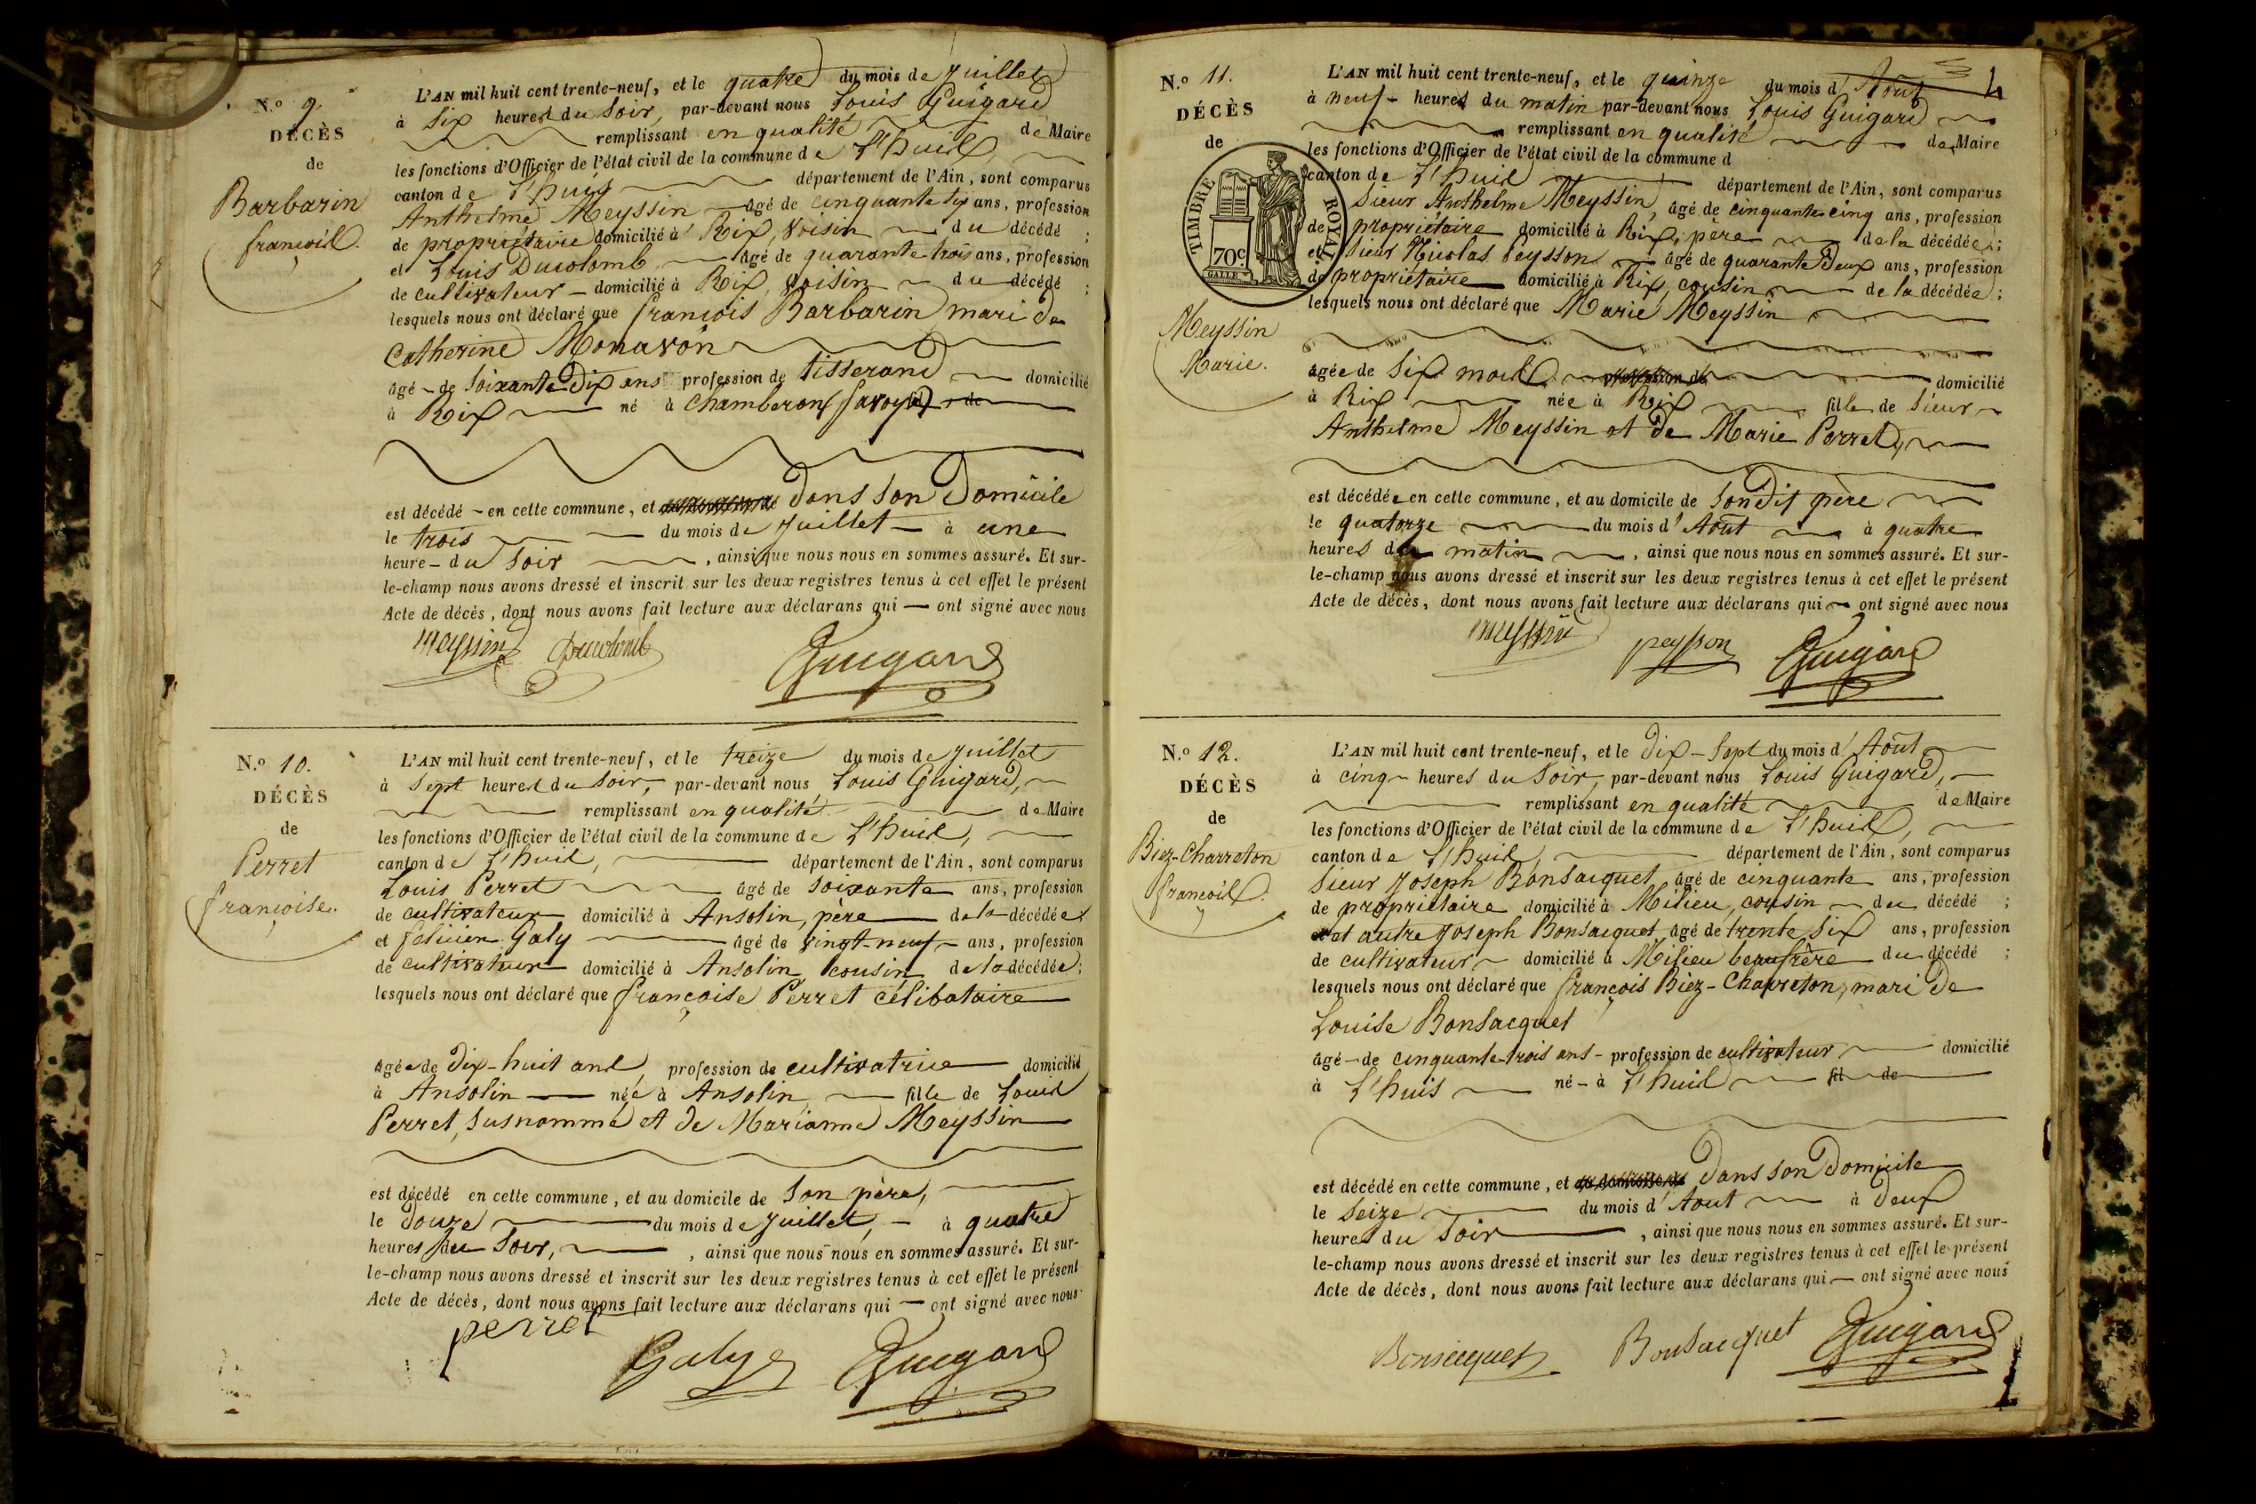 N.o 9.
DÉCÈS
de
Barbarin
françois.
L'AN mil huit cent trente-neuf, et le quatre du mois de Juillet
à Six heures du Soir, par-devant nous Louis Guigard
remplissant en qualité de Maire
les fonctions d'Officier de l'état civil de la commune de L'huis,
canton de L'huis département de l'Ain, sont comparus
Anthelme Meyssin âgé de cinquante six ans, profession
de propriétaire domicilié à Rix, voisin du décédé ;
et Louis Ducolomb âgé de quarante trois ans, profession
de cultivateur domicilié à Rix, voisin du décédé ;
lesquels nous ont déclaré que françois Barbarin mari de
Catherine Monavon
âgé de Soixante Dix ans profession de tisserand domicilié
à Rix né à Chamberon (Savoye) fil de
est décédé en cette commune, et dans son Domicile
le trois du mois de Juillet à une
heure du Soir, ainsi que nous nous en sommes assuré. Et sur-
le-champ nous avons dressé et inscrit sur les deux registres tenus à cet effet le présent
Acte de décès, dont nous avons fait lecture aux déclarans qui ont signé avec nous
Meyssin Ducolomb Guigard
N.o 10.
DÉCÈS
de
Perret
françoise.
L'AN mil huit cent trente-neuf, et le treize du mois de Juillet
à Sept heures du Soir, par-devant nous Louis Guigard,
remplissant en qualité de Maire
les fonctions d'Officier de l'état civil de la commune de L'huis,
canton de L'huis, département de l'Ain, sont comparus
Louis Perret âgé de Soixante ans, profession
de cultivateur domicilié à Ansolin, père de la décédée
et félicien Galy âgé de vingt-neuf ans, profession
de cultivateur domicilié à Ansolin cousin de la décédée ;
lesquels nous ont déclaré que françoise Perret célibataire
âgée de Dix-huit ans profession de cultivatrice domicilié
à Ansolin née à Ansolin fille de Louis
Perret, susnommé et de Marianne Meyssin
est décédé en cette commune, et au domicile de Son père,
le douze du mois de Juillet, à quatre
heures du Soir, ainsi que nous nous en sommes assuré. Et sur-
le-champ nous avons dressé et inscrit sur les deux registres tenus à cet effet le présent
Acte de décès, dont nous avons fait lecture aux déclarans qui ont signé avec nous
perret
Galy Guigard
N.o 11.
DÉCÈS
de
TIMBRE ROYAL
70c
GALLE
Meyssin
Marie.
L'AN mil huit cent trente-neuf, et le quinze du mois d'Août
à neuf heures du matin par-devant nous Louis Guigard
remplissant en qualité de Maire
les fonctions d'Officier de l'état civil de la commune d
canton de L'huis département de l'Ain, sont comparus
Sieur Anthelme Meyssin, âgé de cinquante cinq ans, profession
de propriétaire domicilié à Rix, père de la décédée ;
et Sieur Nicolas Peysson âgé de quarante Deux ans, profession
de propriétaire domicilié à Rix, cousin de la décédée ;
lesquels nous ont déclaré que Marie Meyssin
âgée de Six mois profession de domicilié
à Rix née à Rix fille de Sieur
Anthelme Meyssin et De Marie Perret,
est décédée en cette commune, et au domicile de son dit père
le quatorze du mois d'Août à quatre
heures du matin, ainsi que nous nous en sommes assuré. Et sur-
le-champ nous avons dressé et inscrit sur les deux registres tenus à cet effet le présent
Acte de décès, dont nous avons fait lecture aux déclarans qui ont signé avec nous
meyssin peysson Guigard
N.o 12.
DÉCÈS
de
Biez-Charreton
françois.
L'AN mil huit cent trente-neuf, et le Dix-Sept du mois d'Août
à cinq heures du Soir, par-devant nous Louis Guigard,
remplissant en qualité de Maire
les fonctions d'Officier de l'état civil de la commune de L'huis,
canton de L'huis, département de l'Ain, sont comparus
Sieur Joseph Bonsacquet, âgé de cinquante ans, profession
de propriétaire domicilié à Milieu, cousin du décédé ;
et autre Joseph Bonsacquet âgé de trente Six ans, profession
de cultivateur domicilié à Milieu beaufrère du décédé ;
lesquels nous ont déclaré que françois Biez-Charreton, mari De
Louise Bonsacquet
âgé de cinquante-trois ans profession de cultivateur domicilié
à L'huis né à L'huis fil de
est décédé en cette commune, et Dans son Domicile
le Seize du mois d'Aout à Deux
heures du Soir, ainsi que nous nous en sommes assuré. Et sur-
le-champ nous avons dressé et inscrit sur les deux registres tenus à cet effet le présent
Acte de décès, dont nous avons fait lecture aux déclarans qui ont signé avec nous
Bonsacquet Bonsacquet Guigard